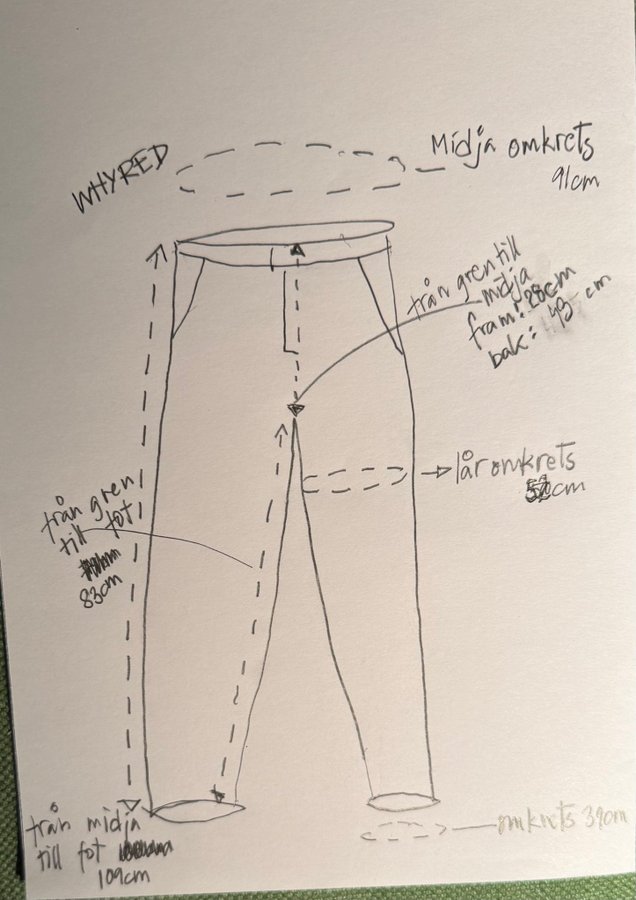 WHYRED
Midja omkrets
91cm
från gren till
midja
fram: 28cm
bak: 43 cm
lår omkrets
cm
från gren
till fot
83cm
från midja
till fot
109cm
omkrets 39cm